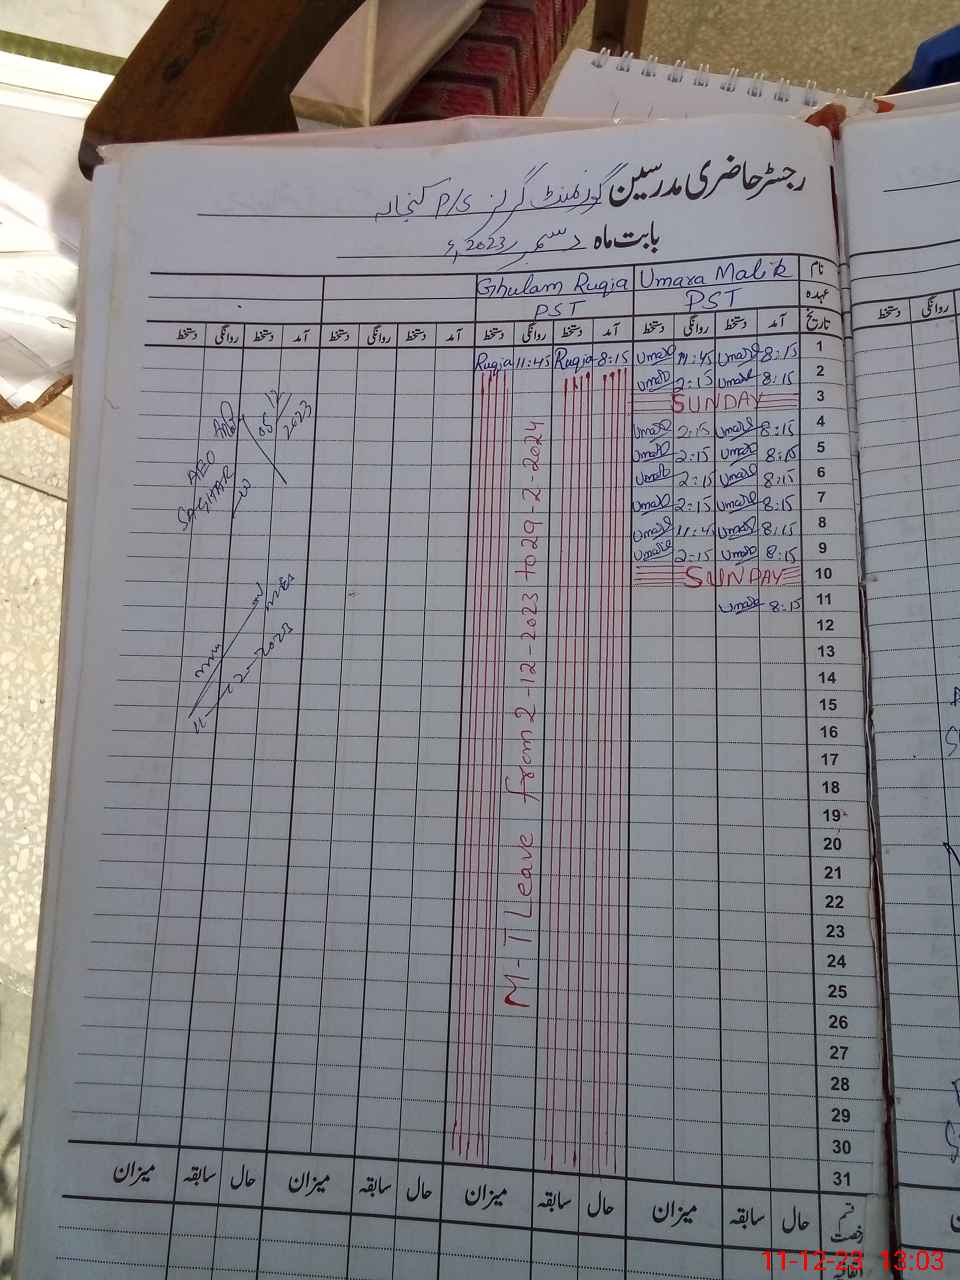 رجسٹر حاضری مدرسین گورنمنٹ گرلز P/S کنجالہ
بابت ماہ دسمبر 2023ء
نام Umara Malik Ghulam Ruqia
عہدہ PST PST
تاریخ آمد دستخط روانگی دستخط آمد دستخط روانگی دستخط آمد دستخط روانگی دستخط آمد دستخط روانگی دستخط
1 8:15 Umara 11:45 Umara 8:15 Ruqia 11:45 Ruqia
2 8:15 Umara 2:15 Umara
3 SUNDAY
4 8:15 Umara 2:15 Umara
5 8:15 Umara 2:15 Umara
6 8:15 Umara 2:15 Umara
7 8:15 Umara 2:15 Umara
8 8:15 Umara 11:45 Umara
9 8:15 Umara 2:15 Umara
10 SUNDAY
11 8:15 Umara
12
13
14
15
16
17
18
19
20
21
22
23
24
25
26
27
28
29
30
31
M-T Leave from 2-12-2023 to 29-2-2024
AEO
SAGHAR
05/12/2023
11-12-2023
قسم رخصت حال سابقہ میزان حال سابقہ میزان حال سابقہ میزان حال سابقہ میزان
اتفاقیہ
روانگی دستخط
11-12-23 13:03